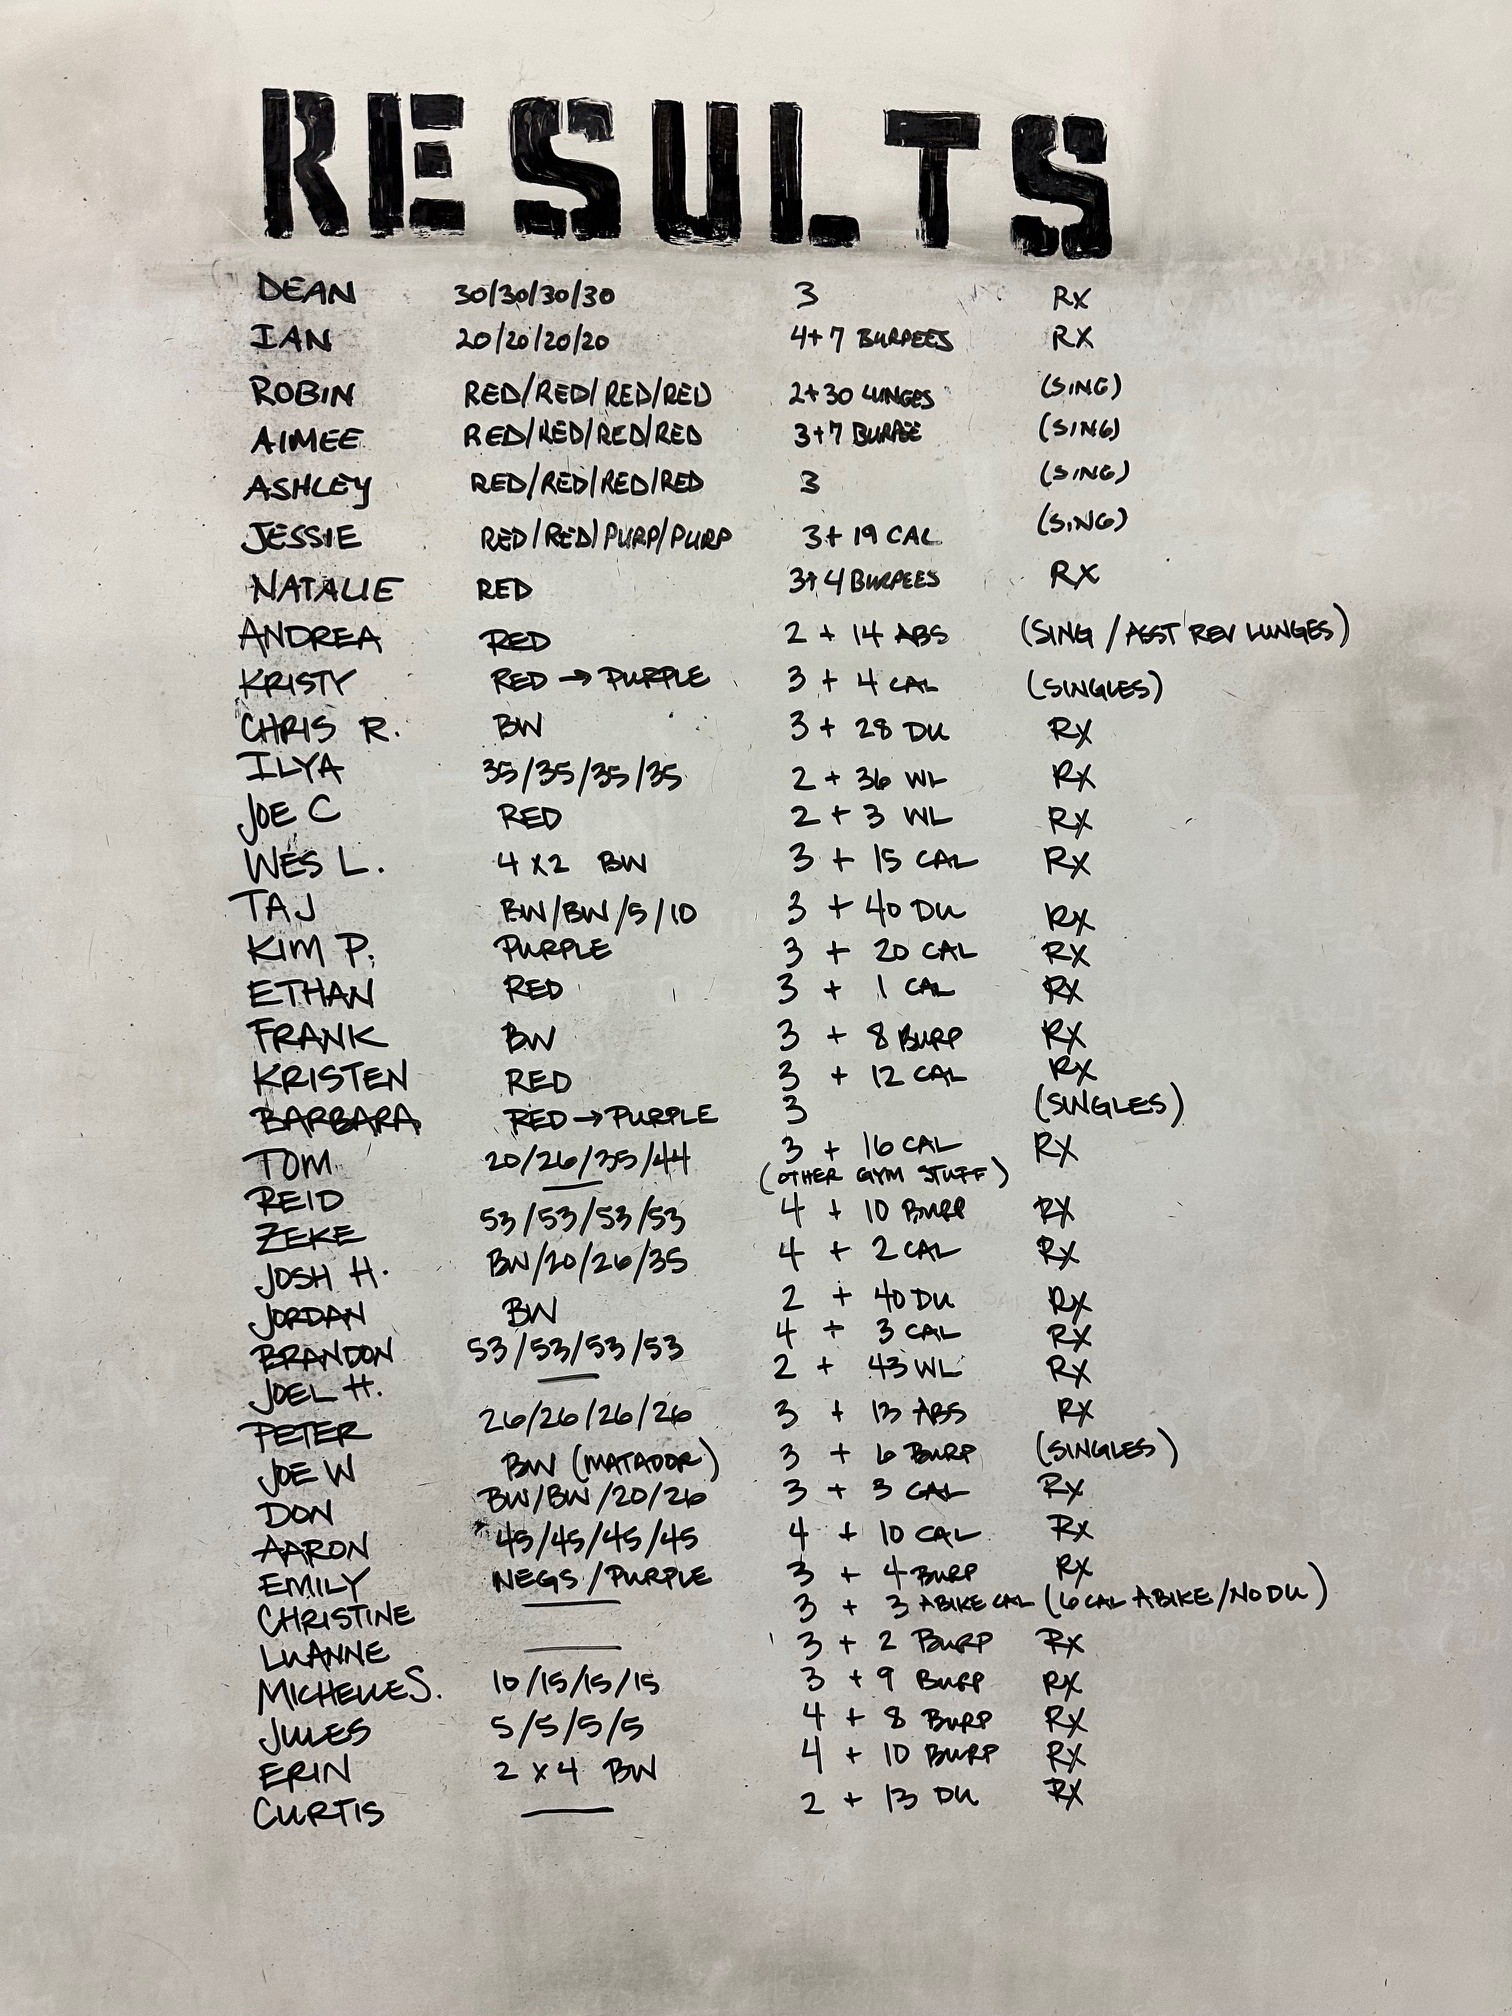 RESULTS
DEAN 30/30/30/30 3 RX
IAN 20/20/20/20 4+7 BURPEES RX
ROBIN RED/RED/RED/RED 2+30 LUNGES (SING)
AIMEE RED/RED/RED/RED 3+7 BURPEE (SING)
ASHLEY RED/RED/RED/RED 3 (SING)
JESSIE RED/RED/PURP/PURP 3+19 CAL (SING)
NATALIE RED 3+4 BURPEES RX
ANDREA RED 2 + 14 ABS (SING / ASST REV LUNGES)
KRISTY RED → PURPLE 3 + 4 CAL (SINGLES)
CHRIS R. BW 3 + 28 DU RX
ILYA 35/35/35/35 2 + 36 WL RX
JOE C RED 2 + 3 WL RX
WES L. 4 x 2 BW 3 + 15 CAL RX
TAJ BW/BW/5/10 3 + 40 DU RX
KIM P. PURPLE 3 + 20 CAL RX
ETHAN RED 3 + 1 CAL RX
FRANK BW 3 + 8 BURP RX
KRISTEN RED 3 + 12 CAL RX
BARBARA RED → PURPLE 3 (SINGLES)
TOM 20/26/35/44 3 + 16 CAL RX
REID — (OTHER GYM STUFF)
ZEKE 53/53/53/53 4 + 10 BURP RX
JOSH H. BW/20/26/35 4 + 2 CAL RX
JORDAN BW 2 + 40 DU RX
BRANDON 53/53/53/53 4 + 3 CAL RX
JOEL H. — 2 + 43 WL RX
PETER 26/26/26/26 3 + 13 ABS RX
JOE W BW (MATADOR) 3 + 6 BURP (SINGLES)
DON BW/BW/20/26 3 + 3 CAL RX
AARON 45/45/45/45 4 + 10 CAL RX
EMILY NEGS/PURPLE 3 + 4 BURP RX
CHRISTINE — 3 + 3 ABIKE CAL (6 CAL ABIKE/NO DU)
LUANNE — 3 + 2 BURP RX
MICHELLE S. 10/15/15/15 3 + 9 BURP RX
JULES 5/5/5/5 4 + 8 BURP RX
ERIN 2 x 4 BW 4 + 10 BURP RX
CURTIS — 2 + 13 DU RX